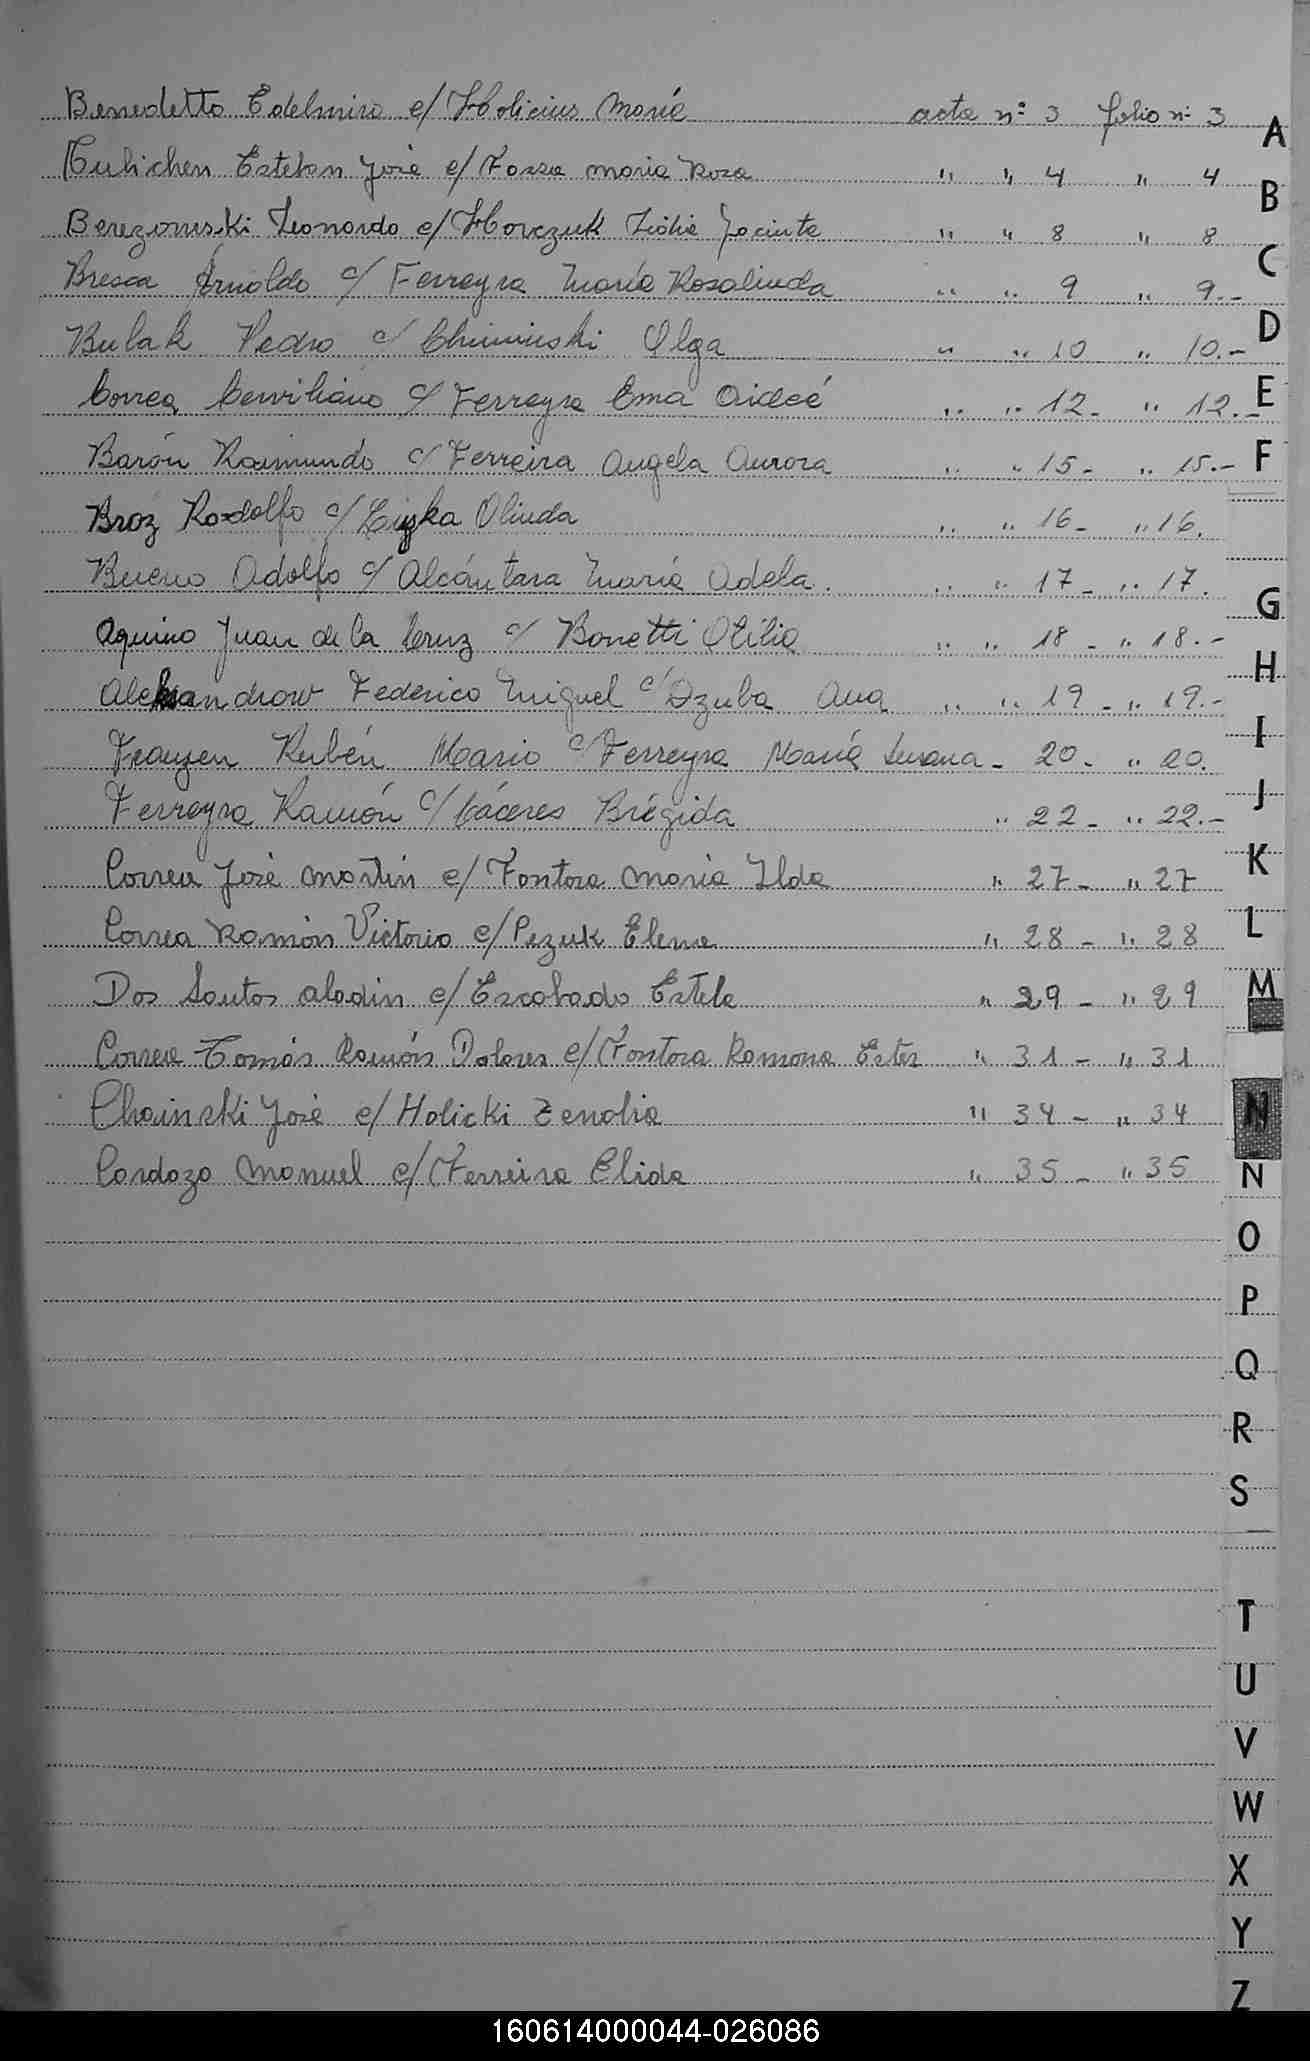 Benedetto Edelmiro c/ Holicius María acta nº 3 folio nº 3
Culichen Esteban José c/ Fossa maria Rosa " " 4 " 4
Berezowski Leonardo c/ Horczuk Lidia Jacinta " " 8 " 8
Bresca Arnoldo c/ Ferreyra María Rosalinda " " 9 " 9.-
Bulak Pedro c/ Chiminski Olga " " 10 " 10.-
Correa Cerviliano c/ Ferreyra Ema Aideé " " 12- " 12.-
Barón Raimundo c/ Ferreira Angela Aurora " " 15- " 15.-
Broz Rodolfo c/ Olinda " " 16- " 16.
Bueno Adolfo c/ Alcántara María Adela. " " 17- " 17.
Aquino Juan de la Cruz c/ Bonetti Otilia " " 18- " 18.-
Aleksandrow Federico Miguel c/ Dzuba Ana " " 19- " 19.-
Franzen Rubén Mario c/ Ferreyra María Susana - 20- " 20.
Ferreyra Ramón c/ Cáceres Brígida " 22- " 22.-
Correa José martín c/ Fontora maria Ilda " 27- " 27
Correa Ramón Victorio c/ Pezuk Elena " 28- " 28
Dos Santos aladin c/ Escobado Estela " 29- " 29
Correa Tomás Ramón Dolores c/ Fontora Ramona Ester " 31- " 31
Chainski José c/ Holicki Zenobia " 34- " 34
Cardozo manuel c/ Ferreira Elida " 35- " 35
A
B
C
D
E
F
G
H
I
J
K
L
M
N
N
O
P
Q
R
S
T
U
V
W
X
Y
Z
160614000044-026086